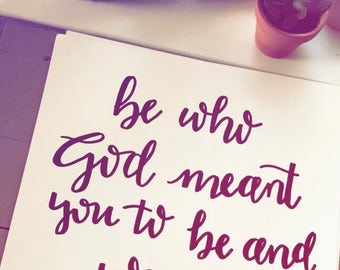 be who
God meant
you to be and